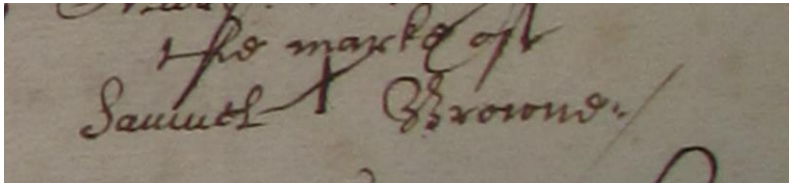 the marke of
Samuell Browne